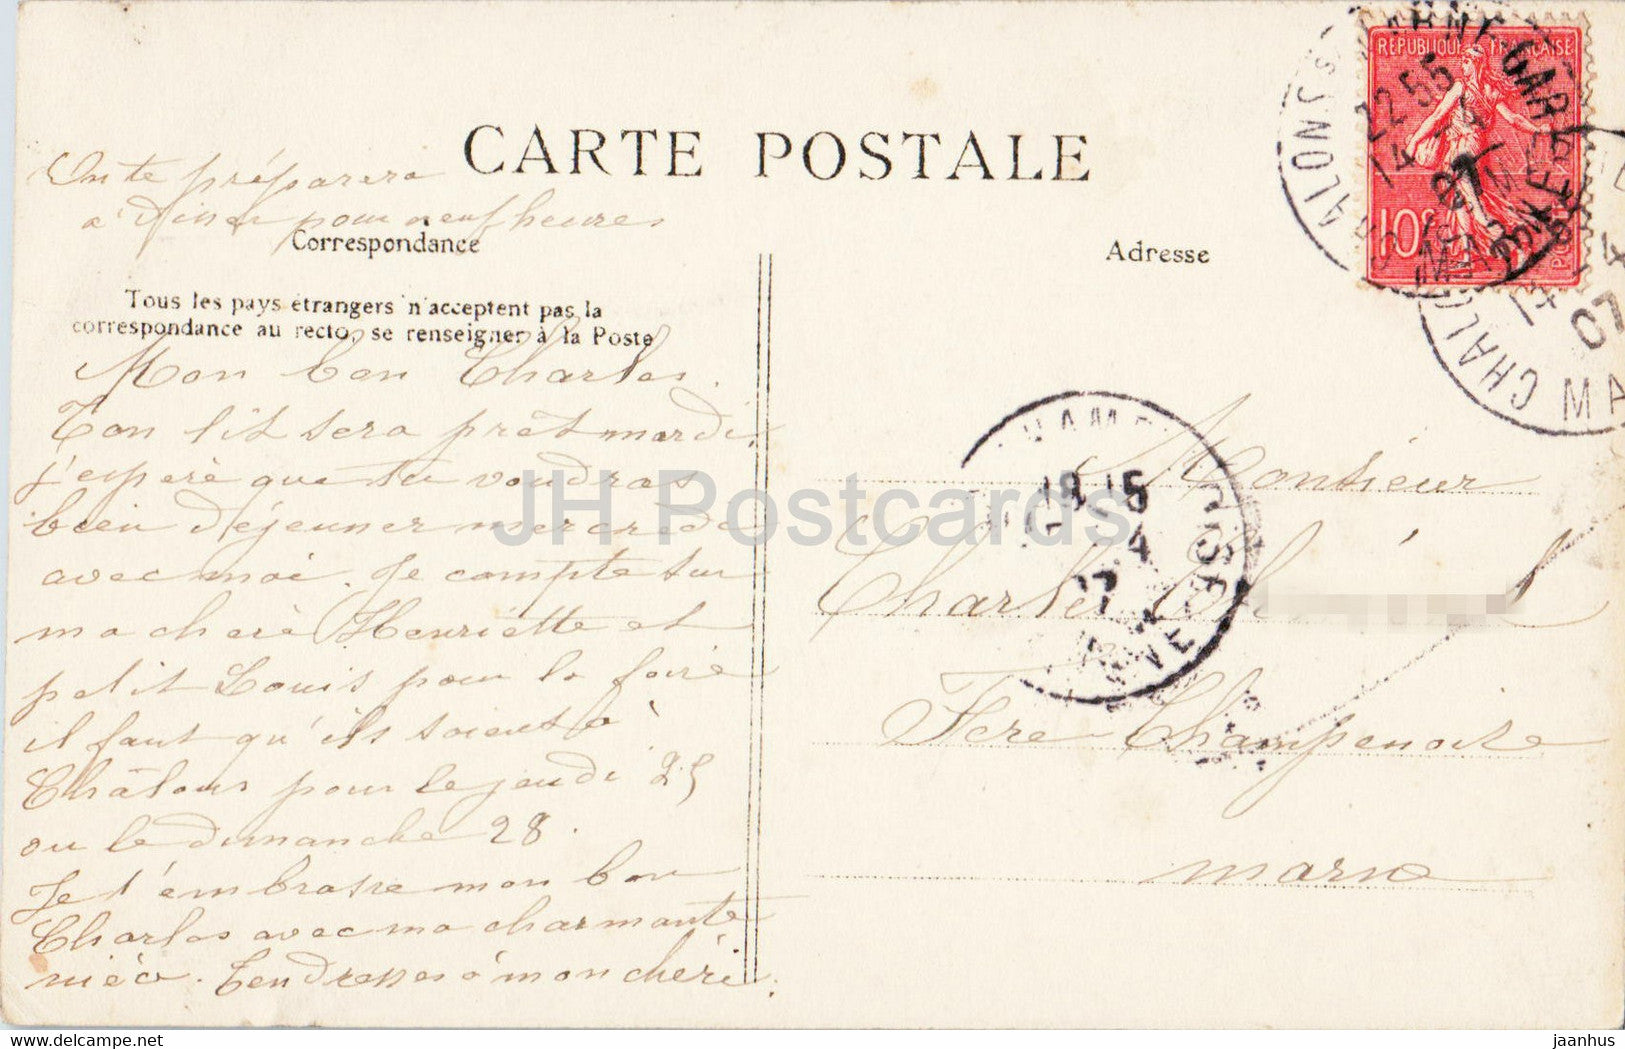 CARTE POSTALE
On te préparera
à dîner pour neuf heures
Correspondance
Adresse
Tous les pays étrangers n'acceptent pas la
correspondance au recto, se renseigner à la Poste
Mon bon Charles.
Ton lit sera prêt mardi.
j'espère que tu voudras
bien déjeuner mercredi
avec moi. Je compte sur
ma chère Henriette et
petit Louis pour la foire
il faut qu'ils soient à
Châlons pour le jeudi 25
ou le dimanche 28.
Je t'embrasse mon bon
Charles avec ma charmante
nièce. Tendresses à mon chéri.
Monsieur
Charles
Fère Champenoise
Marne
REPUBLIQUE FRANÇAISE
10c
22 55
14 -4
07
CHALONS S MARNE GARE
MARNE
CHALONS
14
07
MA
18 15
4
JH Postcards
delcampe.net
jaanhus